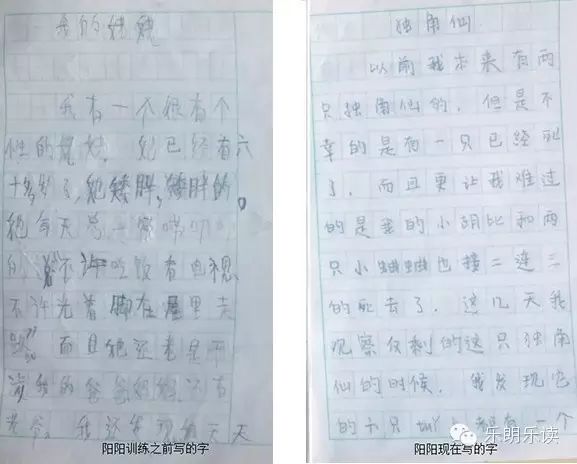 我的姥姥
我有一个很有个
性的姥姥。她已经有六
十多岁了,她矮胖,矮胖的。
她每天总
不许吃饭看电视
不许光着脚在屋里走
而且她还老是
我的爸爸妈妈,还有
老爷。我还发现她天天
阳阳训练之前写的字
独角仙
以前我本来有两
只独角仙的,但是不
幸的是有一只已经死
了,而且更让我难过
的是我的小胡比和两
只小蛐蛐也接二连三
的死去了。这几天我
观察仅剩的这只独角
仙的时候,我发现它
的六只 都有一个
阳阳现在写的字
乐朗乐读